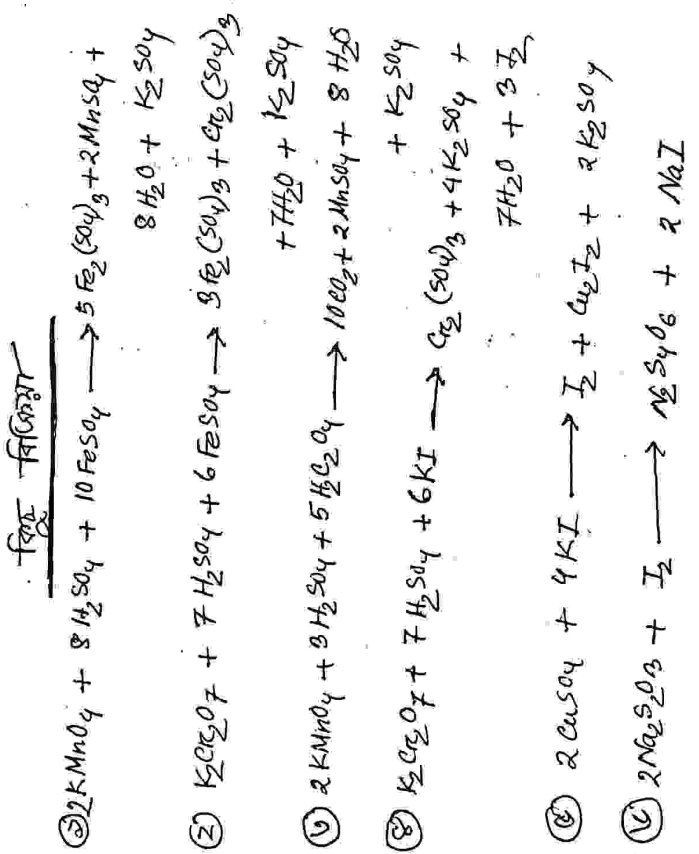 কিছু বিক্রিয়া
১ 2KMnO4 + 8H2SO4 + 10FeSO4 → 5Fe2(SO4)3 + 2MnSO4 +
8H2O + K2SO4
২ K2Cr2O7 + 7H2SO4 + 6FeSO4 → 3Fe2(SO4)3 + Cr2(SO4)3
+ 7H2O + K2SO4
৩ 2KMnO4 + 3H2SO4 + 5H2C2O4 → 10CO2 + 2MnSO4 + 8H2O
+ K2SO4
৪ K2Cr2O7 + 7H2SO4 + 6KI → Cr2(SO4)3 + 4K2SO4 +
7H2O + 3I2
৫ 2CuSO4 + 4KI → I2 + Cu2I2 + 2K2SO4
৬ 2Na2S2O3 + I2 → N2S4O6 + 2NaI